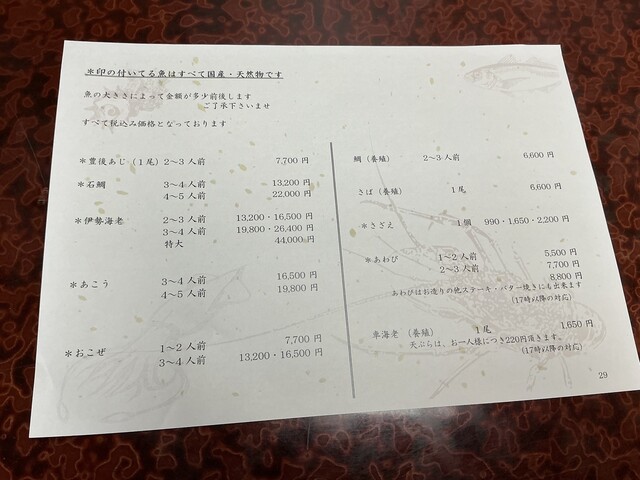 ＊印の付いてる魚はすべて国産・天然物です
魚の大きさによって金額が多少前後します
ご了承下さいませ
すべて税込み価格となっております
＊豊後あじ（1尾）2～3人前 7,700 円
＊石鯛 3～4人前 13,200 円
4～5人前 22,000 円
＊伊勢海老 2～3人前 13,200・16,500 円
3～4人前 19,800・26,400 円
特大 44,000 円
＊あこう 3～4人前 16,500 円
4～5人前 19,800 円
＊おこぜ 1～2人前 7,700 円
3～4人前 13,200・16,500 円
鯛（養殖） 2～3人前 6,600 円
さば（養殖） 1尾 6,600 円
＊さざえ 1個 990・1,650・2,200 円
＊あわび 1～2人前 5,500 円
2～3人前 7,700 円
8,800 円
あわびはお造りの他ステーキ・バター焼きにも出来ます
（17時以降の対応）
車海老（養殖） 1尾 1,650 円
天ぷらは、お一人様につき220円頂きます。
（17時以降の対応）
29